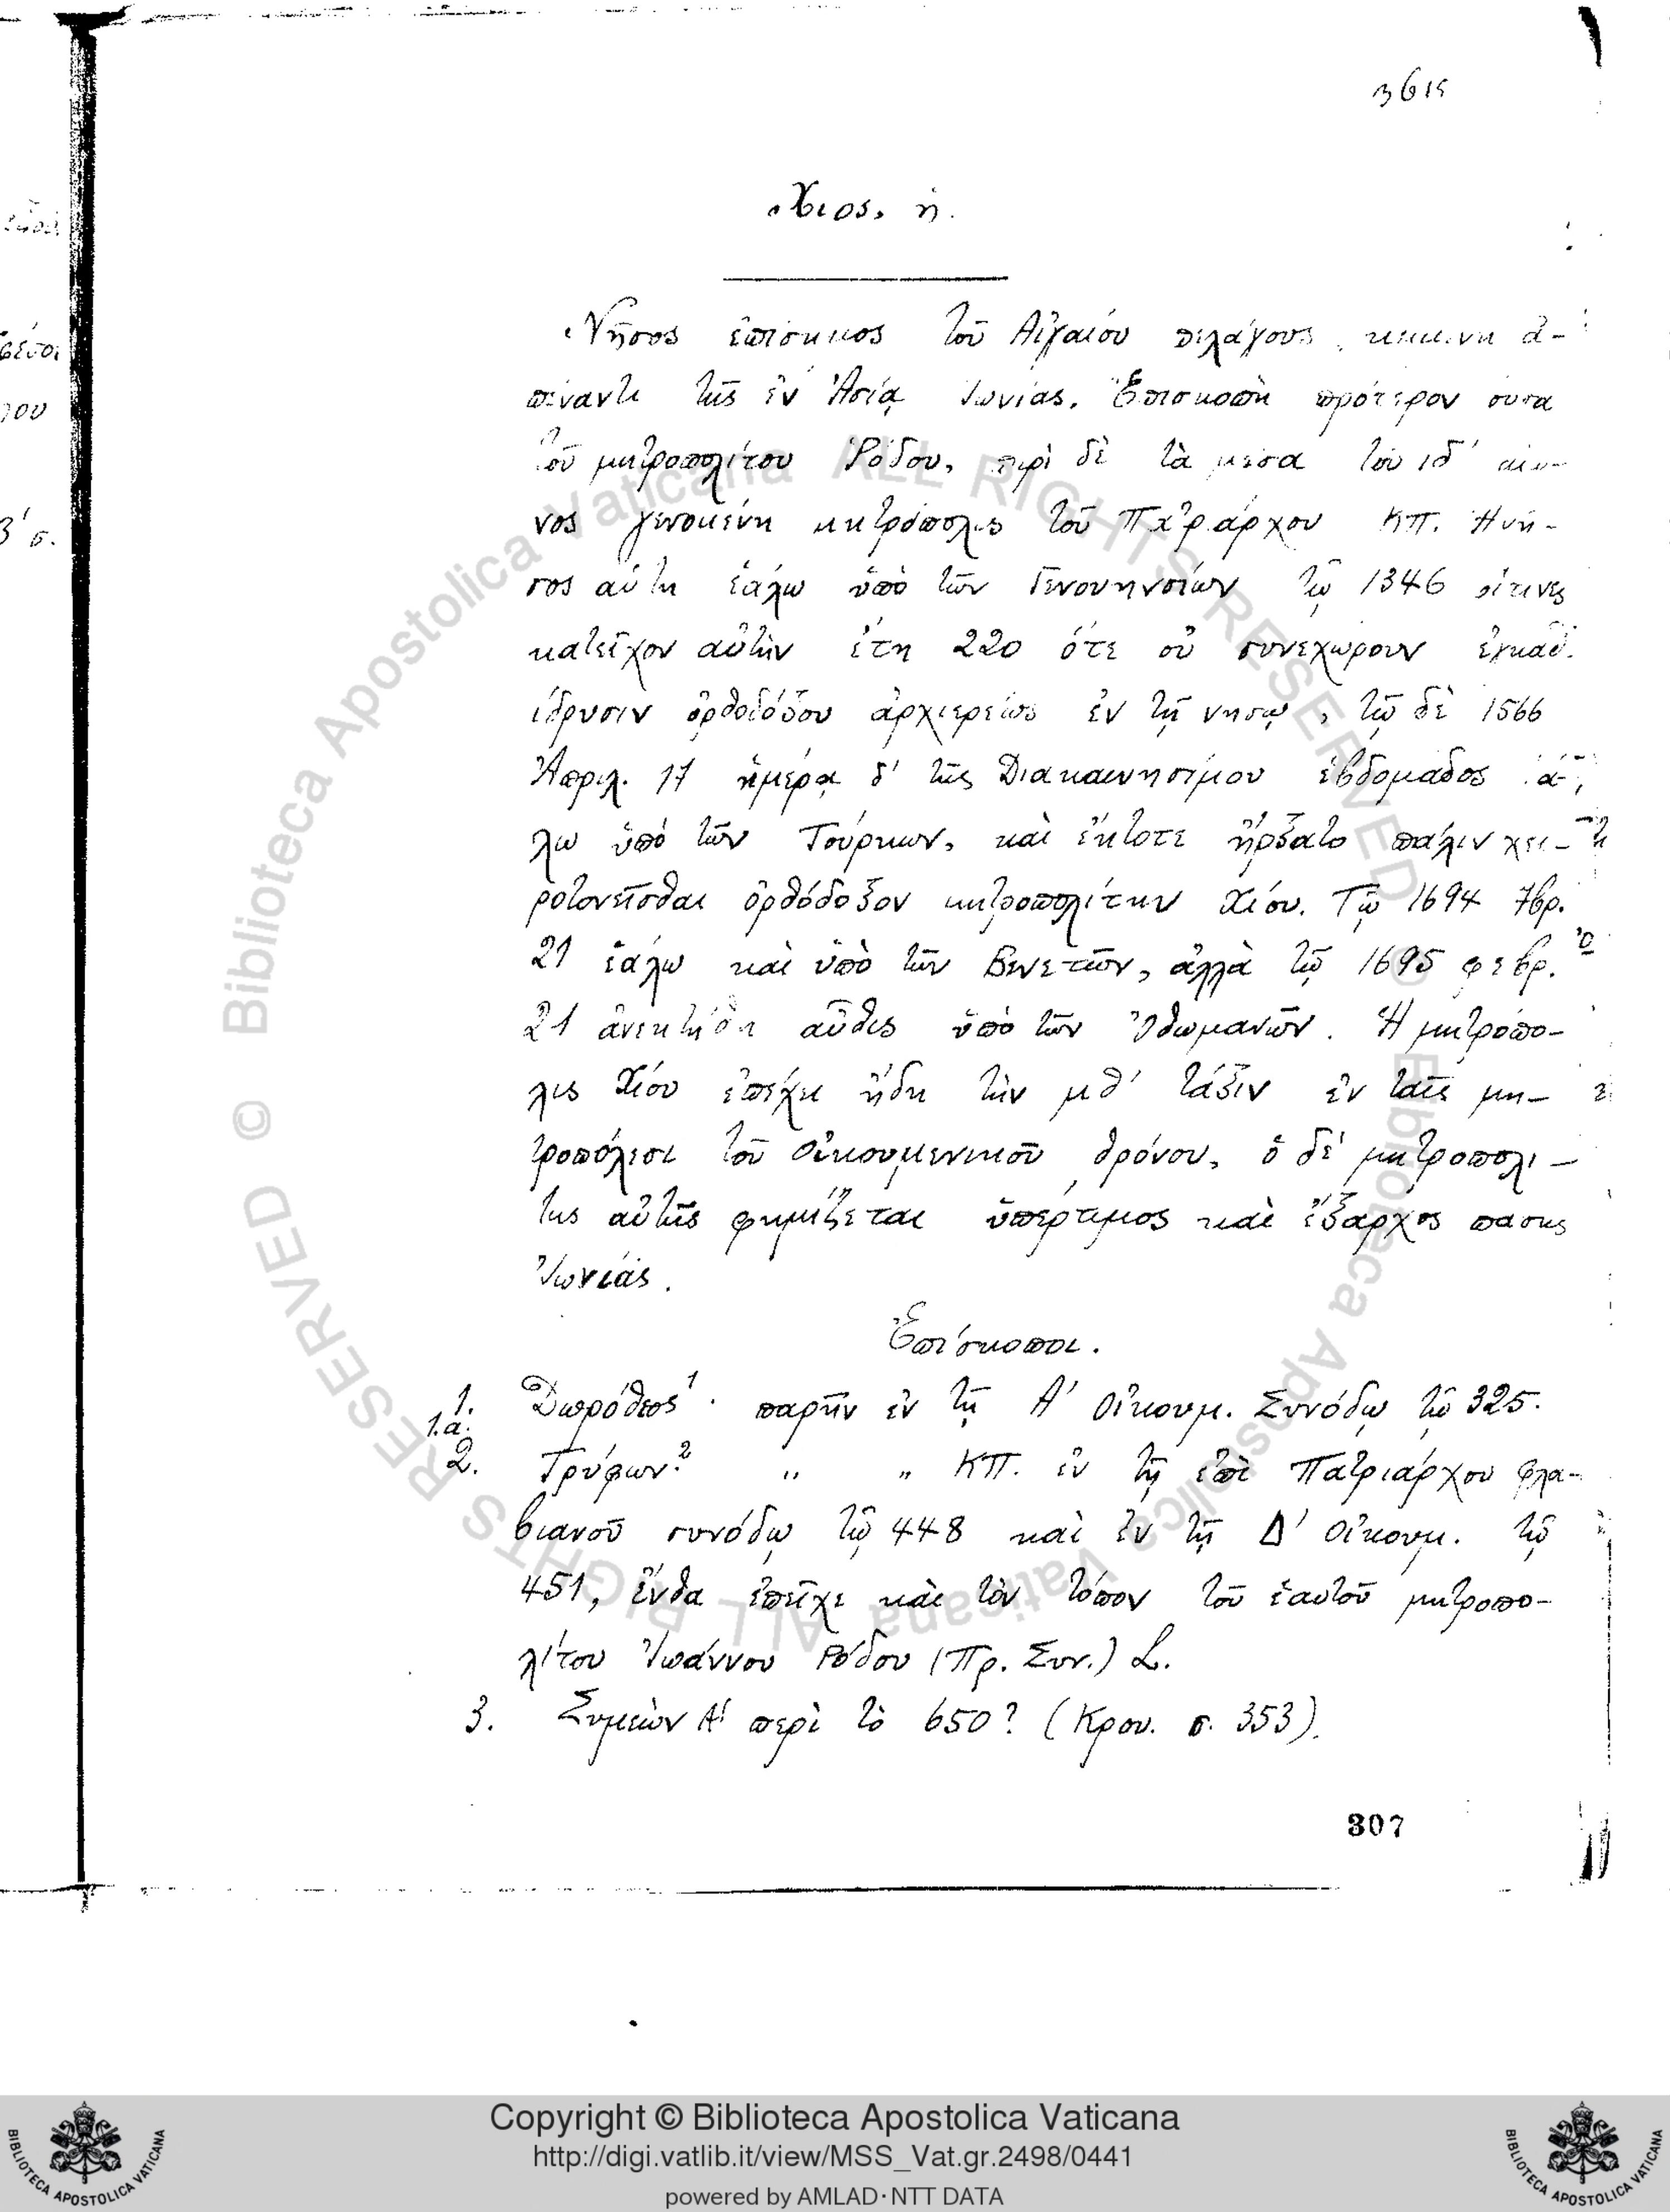 Χίος, ἡ.
Νῆσος ἐπίσημος τοῦ Αἰγαίου πελάγους, κειμένη ἀ-
πέναντι τῆς ἐν Ἀσίᾳ Ἰωνίας. Ἐπισκοπὴ πρότερον οὖσα
τοῦ μητροπολίτου Ῥόδου, περὶ δὲ τὰ μέσα τοῦ ιδ' αἰῶ-
νος γενομένη μητρόπολις τοῦ Πατριάρχου ΚΠ. Ἡ νῆ-
σος αὕτη ἑάλω ὑπὸ τῶν Γενουηνσίων τῷ 1346 οἵτινες
κατεῖχον αὐτὴν ἔτη 220 ὅτε οὐ συνεχώρουν ἐγκαθ-
ίδρυσιν ὀρθοδόξου ἀρχιερέως ἐν τῇ νήσῳ, τῷ δὲ 1566
Ἀπριλ. 17 ἡμέρᾳ δ' τῆς Διακαινησίμου ἑβδομάδος ἑά-
λω ὑπὸ τῶν Τούρκων, καὶ ἔκτοτε ἤρξατο πάλιν χει-
ροτονεῖσθαι ὀρθόδοξον μητροπολίτην Χίου. Τῷ 1694 7βρ.
21 ἑάλω καὶ ὑπὸ τῶν Βενετῶν, ἀλλὰ τῷ 1695 φεβρ.
21 ἀνεκτήθη αὖθις ὑπὸ τῶν Ὀθωμανῶν. Ἡ μητρόπο-
λις Χίου ἐπέχει ἤδη τὴν μθ' τάξιν ἐν ταῖς μη-
τροπόλεσι τοῦ Οἰκουμενικοῦ θρόνου, ὁ δὲ μητροπολί-
της αὐτῆς φημίζεται ὑπέρτιμος καὶ ἔξαρχος πάσης
Ἰωνίας.
Ἐπίσκοποι.
1. Δωρόθεος¹· παρῆν ἐν τῇ Α' Οἰκουμ. Συνόδῳ τῷ 325.
1.α.
2. Τρύφων.² „ „ ΚΠ. ἐν τῇ ἐπὶ Πατριάρχου Φλα-
βιανοῦ συνόδῳ τῷ 448 καὶ ἐν τῇ Δ' Οἰκουμ. τῷ
451, ἔνθα ἐπεῖχε καὶ τὸν τόπον τοῦ ἑαυτοῦ μητροπο-
λίτου Ἰωάννου Ῥόδου (Πρ. Συν.) L.
3. Συμεὼν Α' περὶ τὸ 650? (Κρου. σ. 353).
307
Copyright © Biblioteca Apostolica Vaticana
http://digi.vatlib.it/view/MSS_Vat.gr.2498/0441
powered by AMLAD·NTT DATA
BIBLIOTECA APOSTOLICA VATICANA
BIBLIOTECA APOSTOLICA VATICANA
© Biblioteca Apostolica Vaticana ALL RIGHTS RESERVED
© Biblioteca Apostolica Vaticana ALL RIGHTS RESERVED